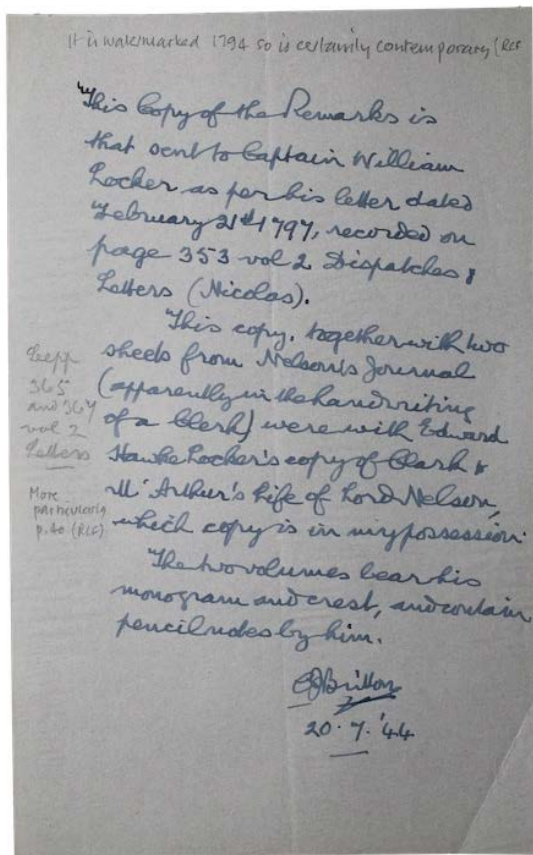 It is watermarked 1794 so is certainly contemporary (RLF
"This Copy of the Remarks is
that sent to Captain William
Locker as per his letter dated
February 21st 1797, recorded on
page 353 vol 2 Dispatches &
Letters (Nicolas).
This copy, together with two
sheets from Nelson's Journal
(apparently in the handwriting
of a Clerk) were with Edward
Hawke Locker's copy of Clark &
Mc Arthur's Life of Lord Nelson,
which copy is in my possession.
The two volumes bear his
monogram and crest, and contain
pencil notes by him.
CJBritton
20.7.'44
See pp
365
and 367
vol 2
Letters
More
particularly
p. 40 (RLF)